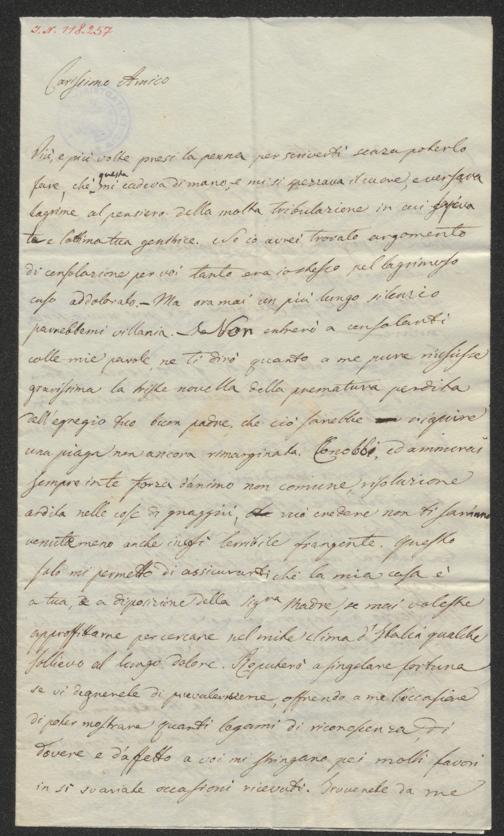 I.N. 118.257
Carissimo Amico
Più, e più volte presi la penna per scriverti senza poterlo
fare, chè questa mi cadeva di mano, e mi si spezzava il cuore, e versava
lagrime al pensiero della molta tribulazione in cui
te e l'ottima tua genitrice. Nè io avrei trovato argomento
di consolazione per voi tanto era io stesso pel lagrimoso
caso addolorato. – Ma ora mai un più lungo silenzio
parrebbemi villania. – Non entrerò a consolarti
colle mie parole, ne ti dirò quanto a me pure riuscisse
gravissima la triste novella della prematura perdita
dell'egregio tuo buon padre, che ciò sarebbe riaprire
una piaga non ancora rimarginata. Conobbi, ed ammirai
sempre in te forza d'animo non comune, risoluzione
ardita nelle cose di maggior, vuò credere non ti saranno
venute meno anche in sì terribile frangente. Questo
solo mi permetto di assicurarti che la mia casa è
a tua, e a disposizione della Sigra Madre, se mai voleste
approfittarne per cercare nel mite clima d'Italia qualche
sollievo al lungo dolore. Reputerò a singolare fortuna
se vi degnerete di prevalervene, offrendo a me l'occasione
di poter mostrare quanti legami di riconoscenza, di
dovere e d'affetto a voi mi stringano pei molti favori
in sì svariate occasioni ricevuti. Troverete da me